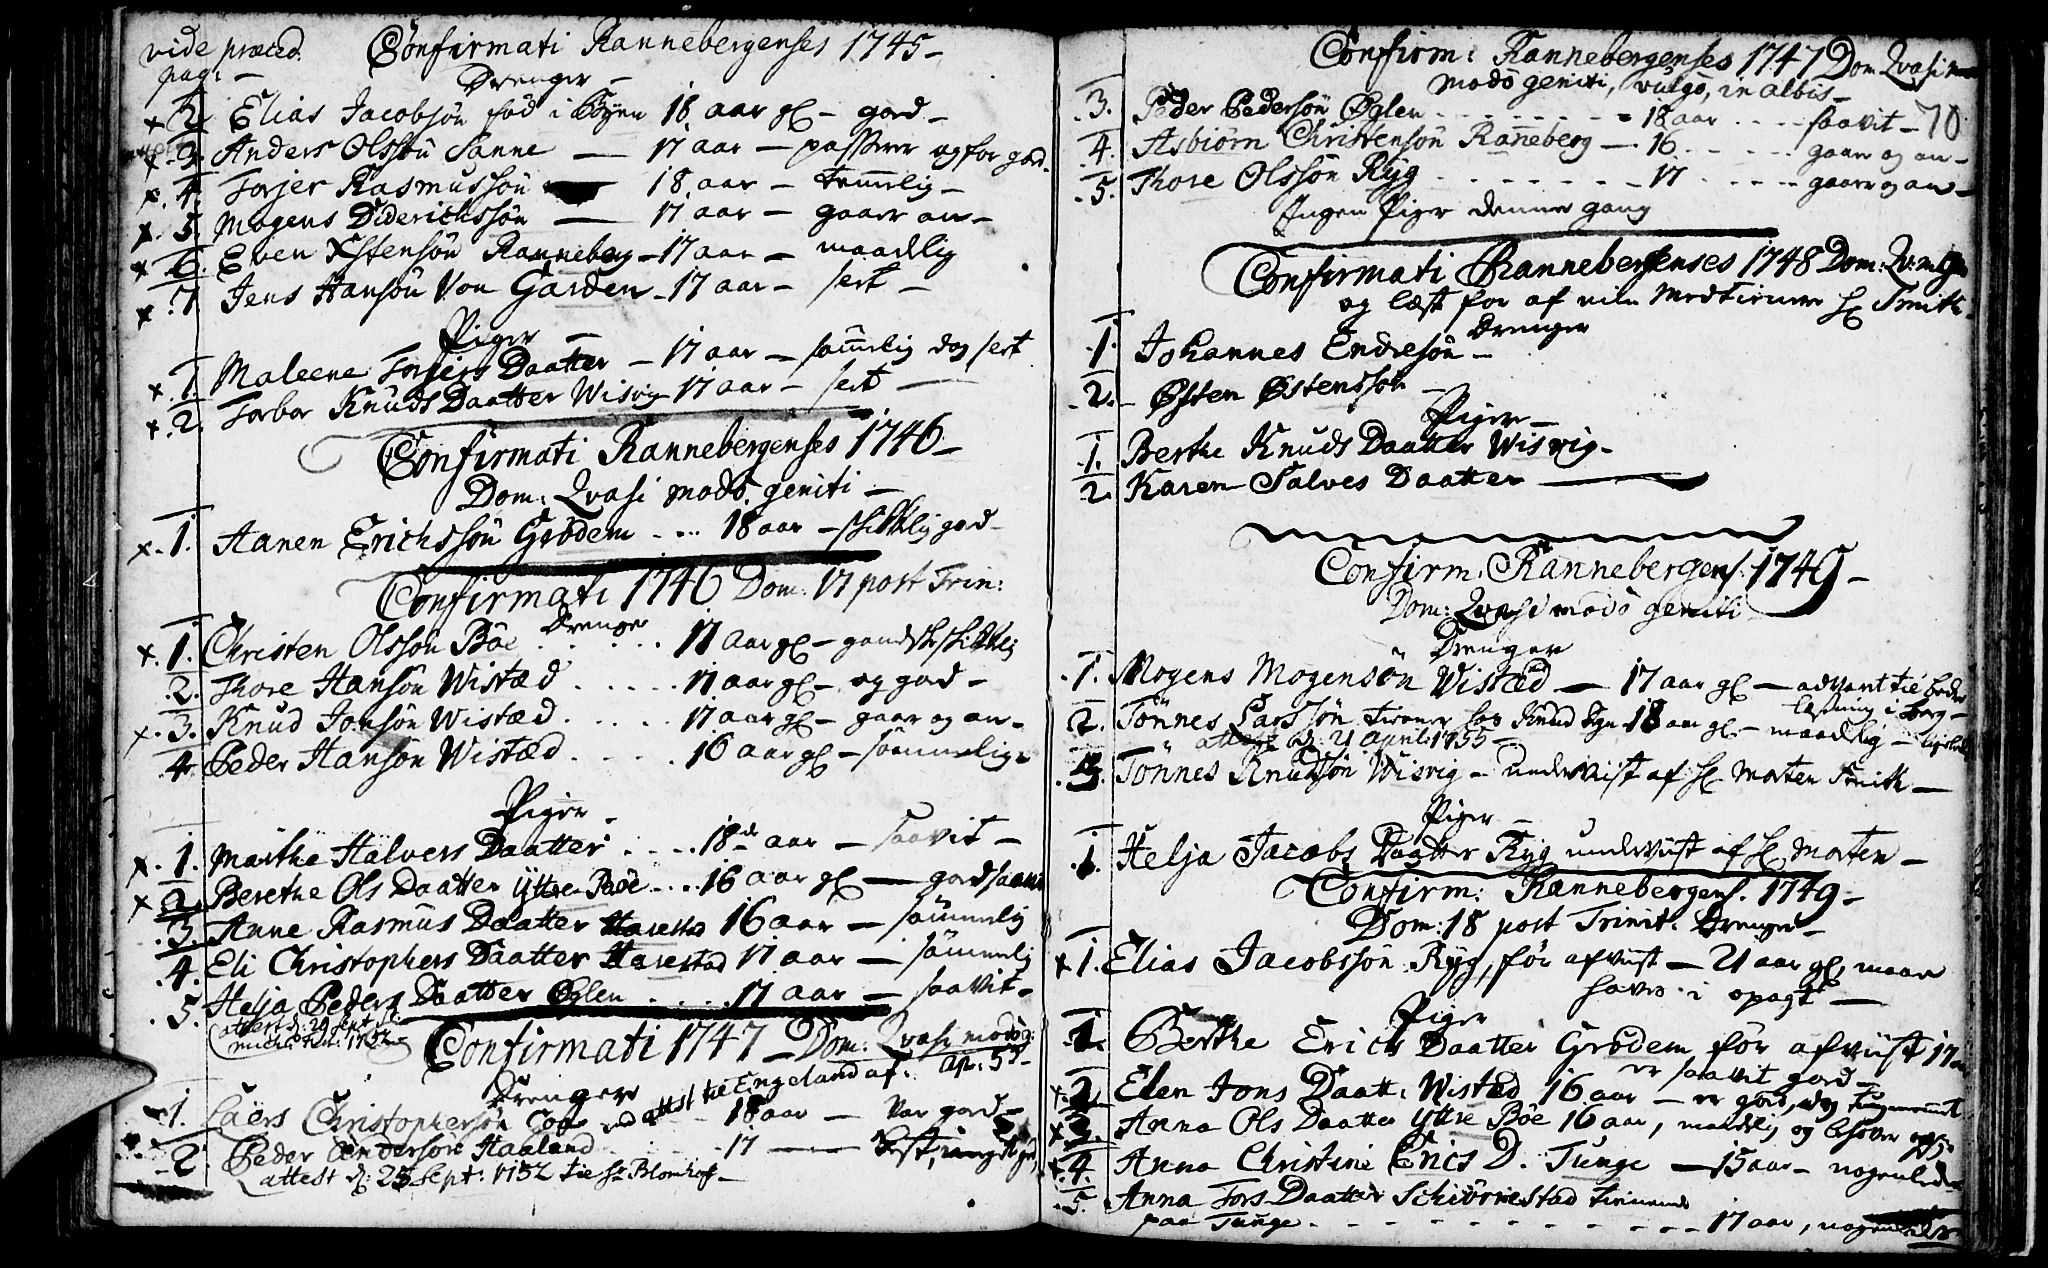 vide præced. Confirmati Rannebergenses 1745 –
pag: – Drenger –
x 2. Elias Jacobsøn fød i Byen 18 aar gl – god –
x 3. Anders Olssøn Sanne – 17 aar – og for god.
x. 4. Torjer Rasmussøn 18 aar – temmelig –
x. 5. Mogens Diderichssøn – 17 aar – gaar an –
x 6. Even Ostensøn Ranneberg – 17 aar – maadelig
x .7. Jens Hansøn Von Garden – 17 aar – slet –
Piger –
x .1. Maleene Torjers Daatter – 17 aar – dog slet
x .2. Torbor Knuds Daatter Wisvig 17 aar – slet –
Confirmati Rannebergenses 1746 –
Dom: Qvasi modo geniti –
x. .1. Aanen Erichssøn Grødem . . . 18 aar – skikkelig god –
Confirmati 1746 Dom: 17 post Trin:
Drenger
x. .1. Christen Olssøn Bøe . . . . . 17 aar gl – gandske skikkelig
.2. Thore Hansøn Wistæd . . . . . 17 aar gl – og god –
x .3. Knud Jonsøn Wistæd . . . . . 17 aar gl – gaar og an –
.4. Peder Hansøn Wistæd . . . . . 16 aar gl – sømmelig –
Piger –
x. .1. Marthe Halvers Daatter . . . . 18de aar – saavit –
x 2. Berethe Ols Daatter Yttre Bøe . . . . 16 aar gl – god
.3. Anne Rasmus Daatter Harestad 16 aar – sømmelig
.4. Eli Christophers Daatter Harestad 17 aar – sømmelig
.5. Helja Peders Daatter Øglen . . . . . 17 aar – saavit –
attest d: 29 Sept 1752
Confirmati 1747 – Dom: Qvasi modo g:
Drenger ap: 53 –
.1. Laers Christophersøn attest til Engeland af. 18 aar – var god –
.2. Peder Andersøn Haaland . . . . . 17 –
attest d: 25 Sept: 1752 til Sr Blomhof –
Confirm: Rannebergenses 1747 Dom Qvasi
modo geniti, vulgo, in albis –
.3. Peder Pedersøn Øglen . . . . . . 18 aar . . . . saavit – 70
.4. Asbiørn Christensøn Ranneberg – 16 . . . . . . gaar og an –
.5. Thore Olssøn Ryg . . . . . . . . 17 . . . . . gaar og an –
Ingen Piger denne gang
Confirmati Rannebergenses 1748 Dom: Qv: m: gen
og læst for af Sr Smith.
Drenger
.1. Johannes Endresøn –
.2. Østen Østenssøn –
Piger –
.1. Berthe Knuds Daatter Wisvig –
.2. Karen Salves Daatter –
Confirm. Rannebergens: 1749 –
Dom: Qvasi modo geniti
Drenger
.1. Mogens Mogensøn Wistæd – 17 aar gl – advaret til bedre
læsning i
2. Tønnes Larssøn tiener hos Knud 18 aar gl – maadelig –
attest d: 21 April 1755 –
.3. Tønnes Knudsøn Wisvig – underviist af Sr Morten Smith –
Piger –
.1. Helja Jacobs Daatter Ryg underviist af Sr Morten –
Confirm: Rannebergens. 1749 –
Dom: 18 post Trinit: Drenger –
x 1. Elias Jacobssøn Ryg, før afviist – 21 aar gl, maa
haves i opagt –
Piger
.1. Berthe Erichs Daatter Grødem før afviist 17
er saavit god –
x 2. Elen Jons Daatt: Wistæd 16 aar – er god, dog
x 3. Anna Ols Daatter Yttre Bøe 16 aar, maadelig og
x .4. Anna Christine Erics D. Tunge – 15 aar – nogenlede
.5. Anna Tors Daatter Schiørrestad tienende
paa Tunge . . . . . . . . . . . 17 aar,